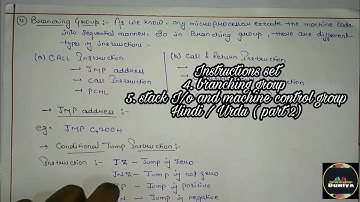 ④ Branching Group :- As we know, any microprocessor execute the machine code
into sequential manner. So in Branching group, there are different
types of instruction:-
(a) CALL Instruction
→ JMP address
→ Call instruction
→ PCHL
(b) Call & Return Instruction
Instructions set
4. branching group
5. stack I/o and machine control group
Hindi / Urdu ( part 2)
→ JMP address :-
eg:- JMP C200H
→ Conditional Jump Instruction :-
Instruction :- JZ - Jump if zero
JNZ - Jump if not zero
JP - Jump if positive
- Jump if negative
DUNIYA